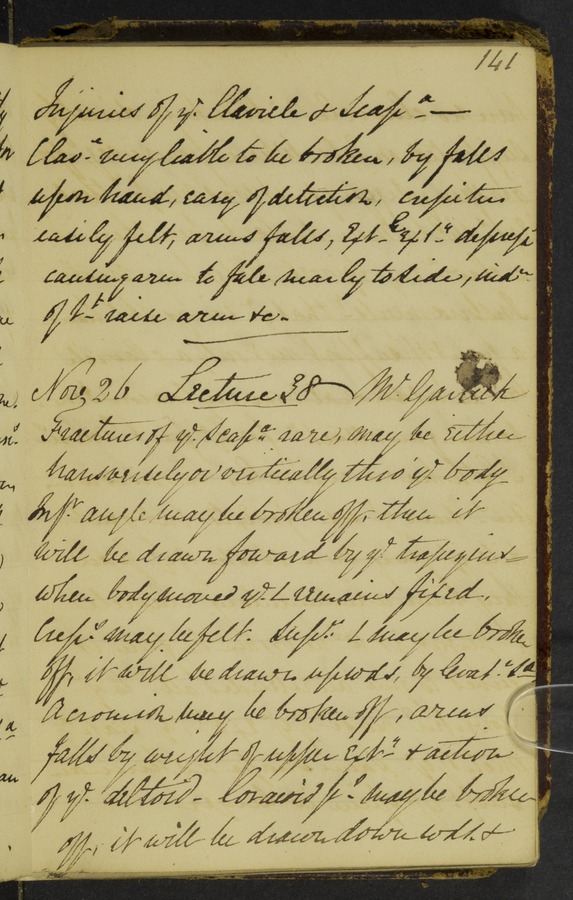 141
Injuries of ye. Clavicle & Scapa—
Clave very liable to be broken, by falls
upon hand, easy of detection, crepitus
easily felt, arms falls, Ext
causing arm to fale nearly to side, indn
of Pt raise arm &c.
Nov 26 Lecture 38 Mr. Garlick
Fractures of ye. Scapa rare, may be either
transversely or vertically thro' ye. body
Infr. angle may be broken off, then it
will be drawn foward by ye. trapezius=
when body moved ye. L remains fixed.
Creps. may be felt. Supr. L may be broken
off, it will be drawn upwds, by levatr. Sa
Acromion may be broken off, arms
falls by weight of upper Extr & action
of ye. deltoid - Coracoid ps. may be broken
off, it will be drawn downwds. &